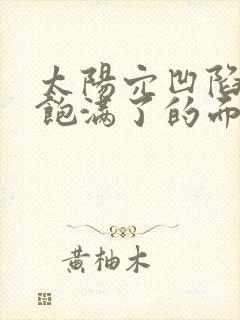 太陽穴凹陷
飽滿了的而
黃柚木